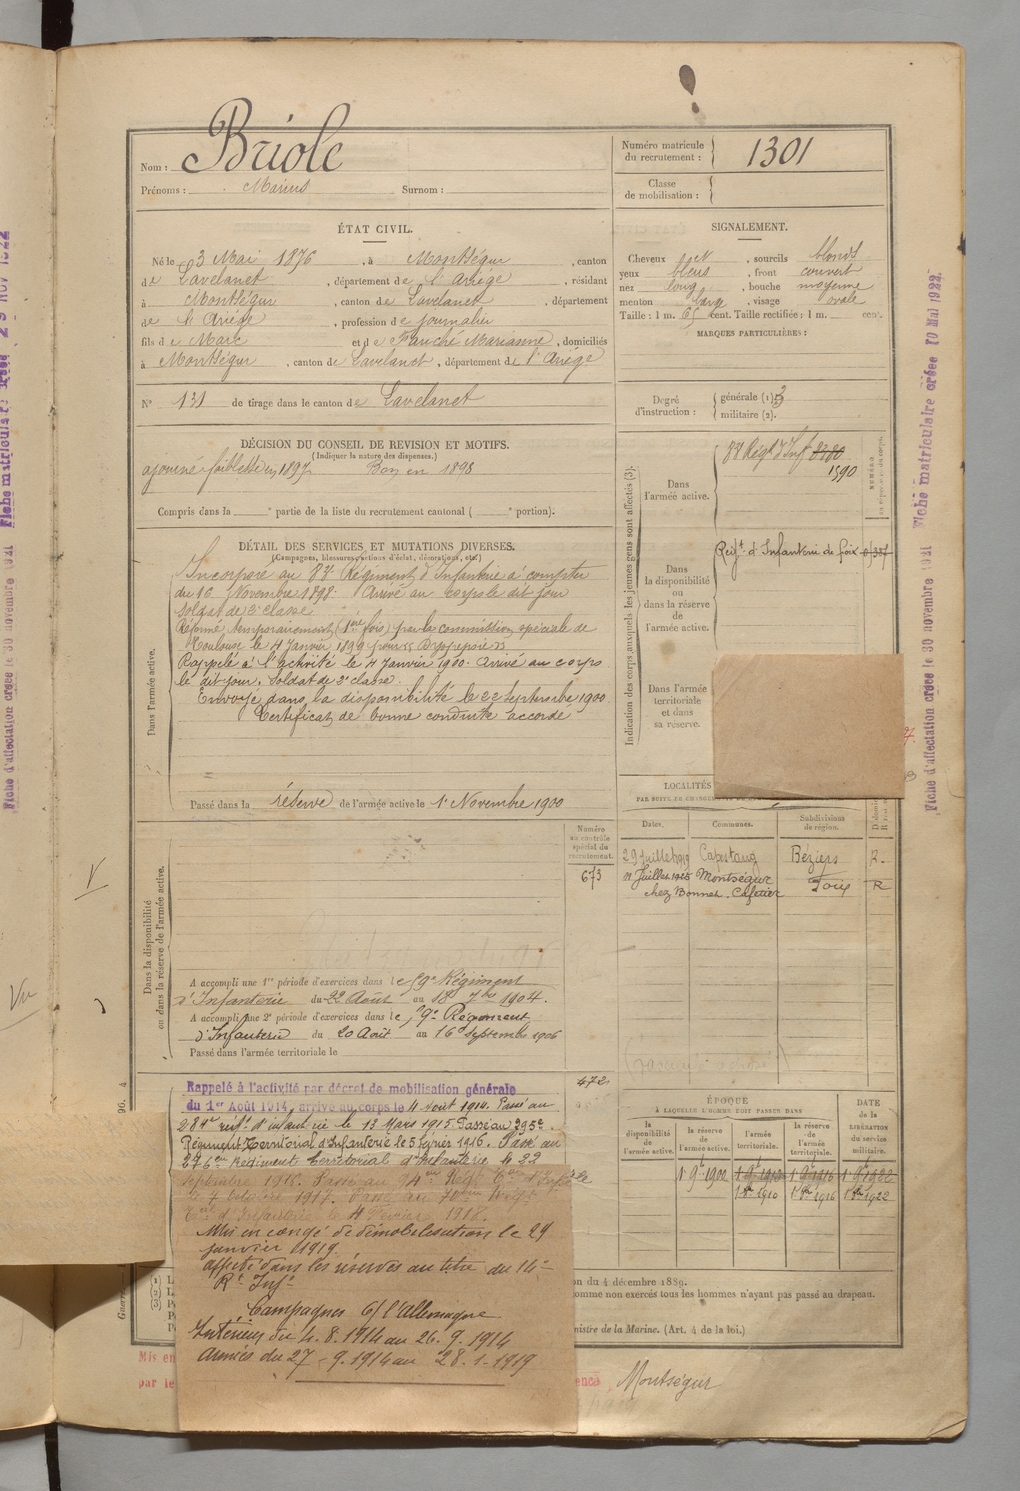 Nom : Briole
Prénoms : Marius Surnom :
Numéro matricule du recrutement : 1301
Classe de mobilisation :
ÉTAT CIVIL.
Né le 3 Mai 1876, à Montségur, canton
de Lavelanet, département de l'Ariége, résidant
à Montségur, canton de Lavelanet, département
de l'Ariége, profession de journalier
fils de Marc et de Marianne, domiciliés
à Montségur, canton de Lavelanet, département de l'Ariége
N° 131 de tirage dans le canton de Lavelanet
SIGNALEMENT.
Cheveux, sourcils blonds
yeux bleus, front couvert
nez long, bouche moyenne
menton large, visage ovale
Taille : 1 m. 65 cent. Taille rectifiée : 1 m. cent.
MARQUES PARTICULIÈRES :
Degré d'instruction : générale (1). 3
militaire (2).
DÉCISION DU CONSEIL DE REVISION ET MOTIFS.
(Indiquer la nature des dispenses.)
ajourné faiblesse en 1897 Bon en 1898
Compris dans la e partie de la liste du recrutement cantonal ( e portion).
DÉTAIL DES SERVICES ET MUTATIONS DIVERSES.
(Campagnes, blessures, actions d'éclat, décorations, etc.)
Dans l'armée active.
Incorporé au 83e Régiment d'Infanterie à compter
du 16 Novembre 1898. Arrivé au corps le dit jour
soldat de 2e classe
Réformé temporairement (1ère fois) par la commission spéciale de
Toulouse le 4 Janvier 1899 pour
Rappelé à l'activité le 4 Janvier 1900. Arrivé au corps
le dit jour. Soldat de 2e classe.
Envoyé dans la disponibilité le 22 Septembre 1900.
Certificat de bonne conduite accordé
Passé dans la réserve de l'armée active le 1er Novembre 1900
Indication des corps auxquels les jeunes gens sont affectés (3).
Dans l'armée active.
83e Régt d'Inf
1590
Dans la disponibilité ou dans la réserve de l'armée active.
Regt d'Infanterie de Foix
Dans l'armée territoriale et dans sa réserve.
LOCALITÉS
Dates. Communes. Subdivisions de région.
29 Juillet 1919 Capestang Béziers R.
11 Juillet 1925 Montségur Foix R
chez Bonnet. Cafetier
Numéro au contrôle spécial du recrutement.
673
Dans la disponibilité ou dans la réserve de l'armée active.
A accompli une 1re période d'exercices dans le 59e Régiment
d'Infanterie du 22 Août au 18 7bre 1904.
A accompli une 2e période d'exercices dans le 59e Régiment
d'Infanterie du 20 Août au 16 septembre 1906
Passé dans l'armée territoriale le
472
Rappelé à l'activité par décret de mobilisation générale
du 1er Août 1914, arrivé au corps le 4 août 1914. Passé au
d'infanterie le 13 Mars 1915. Passé au 295e
Régiment Territorial d'Infanterie le 5 février 1916. Passé au
276e Régiment territorial d'Infanterie le 22
septembre 1916. Passé au 94e Régt
le 4 octobre 1917. Passé au Régt
d'Infanterie le 4 Février 1918.
Mis en congé de démobilisation le 29
janvier 1919.
affecté dans les réserves au titre du 14e
Rt Infie
Campagnes C/ l'Allemagne
Intérieur du 4.8.1914 au 26.9.1914
Armées du 27-9.1914 au 28.1.1919
ÉPOQUE
À LAQUELLE L'HOMME DOIT PASSER DANS
la disponibilité de l'armée active. la réserve de l'armée active. l'armée territoriale. la réserve de l'armée territoriale.
DATE de la LIBÉRATION du service militaire.
on du 4 décembre 1889.
omme non exercés tous les hommes n'ayant pas passé au drapeau.
nistre de la Marine. (Art. 4 de la loi.)
Mis en
par le
Montségur
Fiche d'affectation créée le 30 novembre 1921
Fiche matriculaire créée 10 Mai 1922.
Fiche d'affectation créée le 30 novembre 1921
Fiche matriculaire créée 29 NOV 1922
Vu